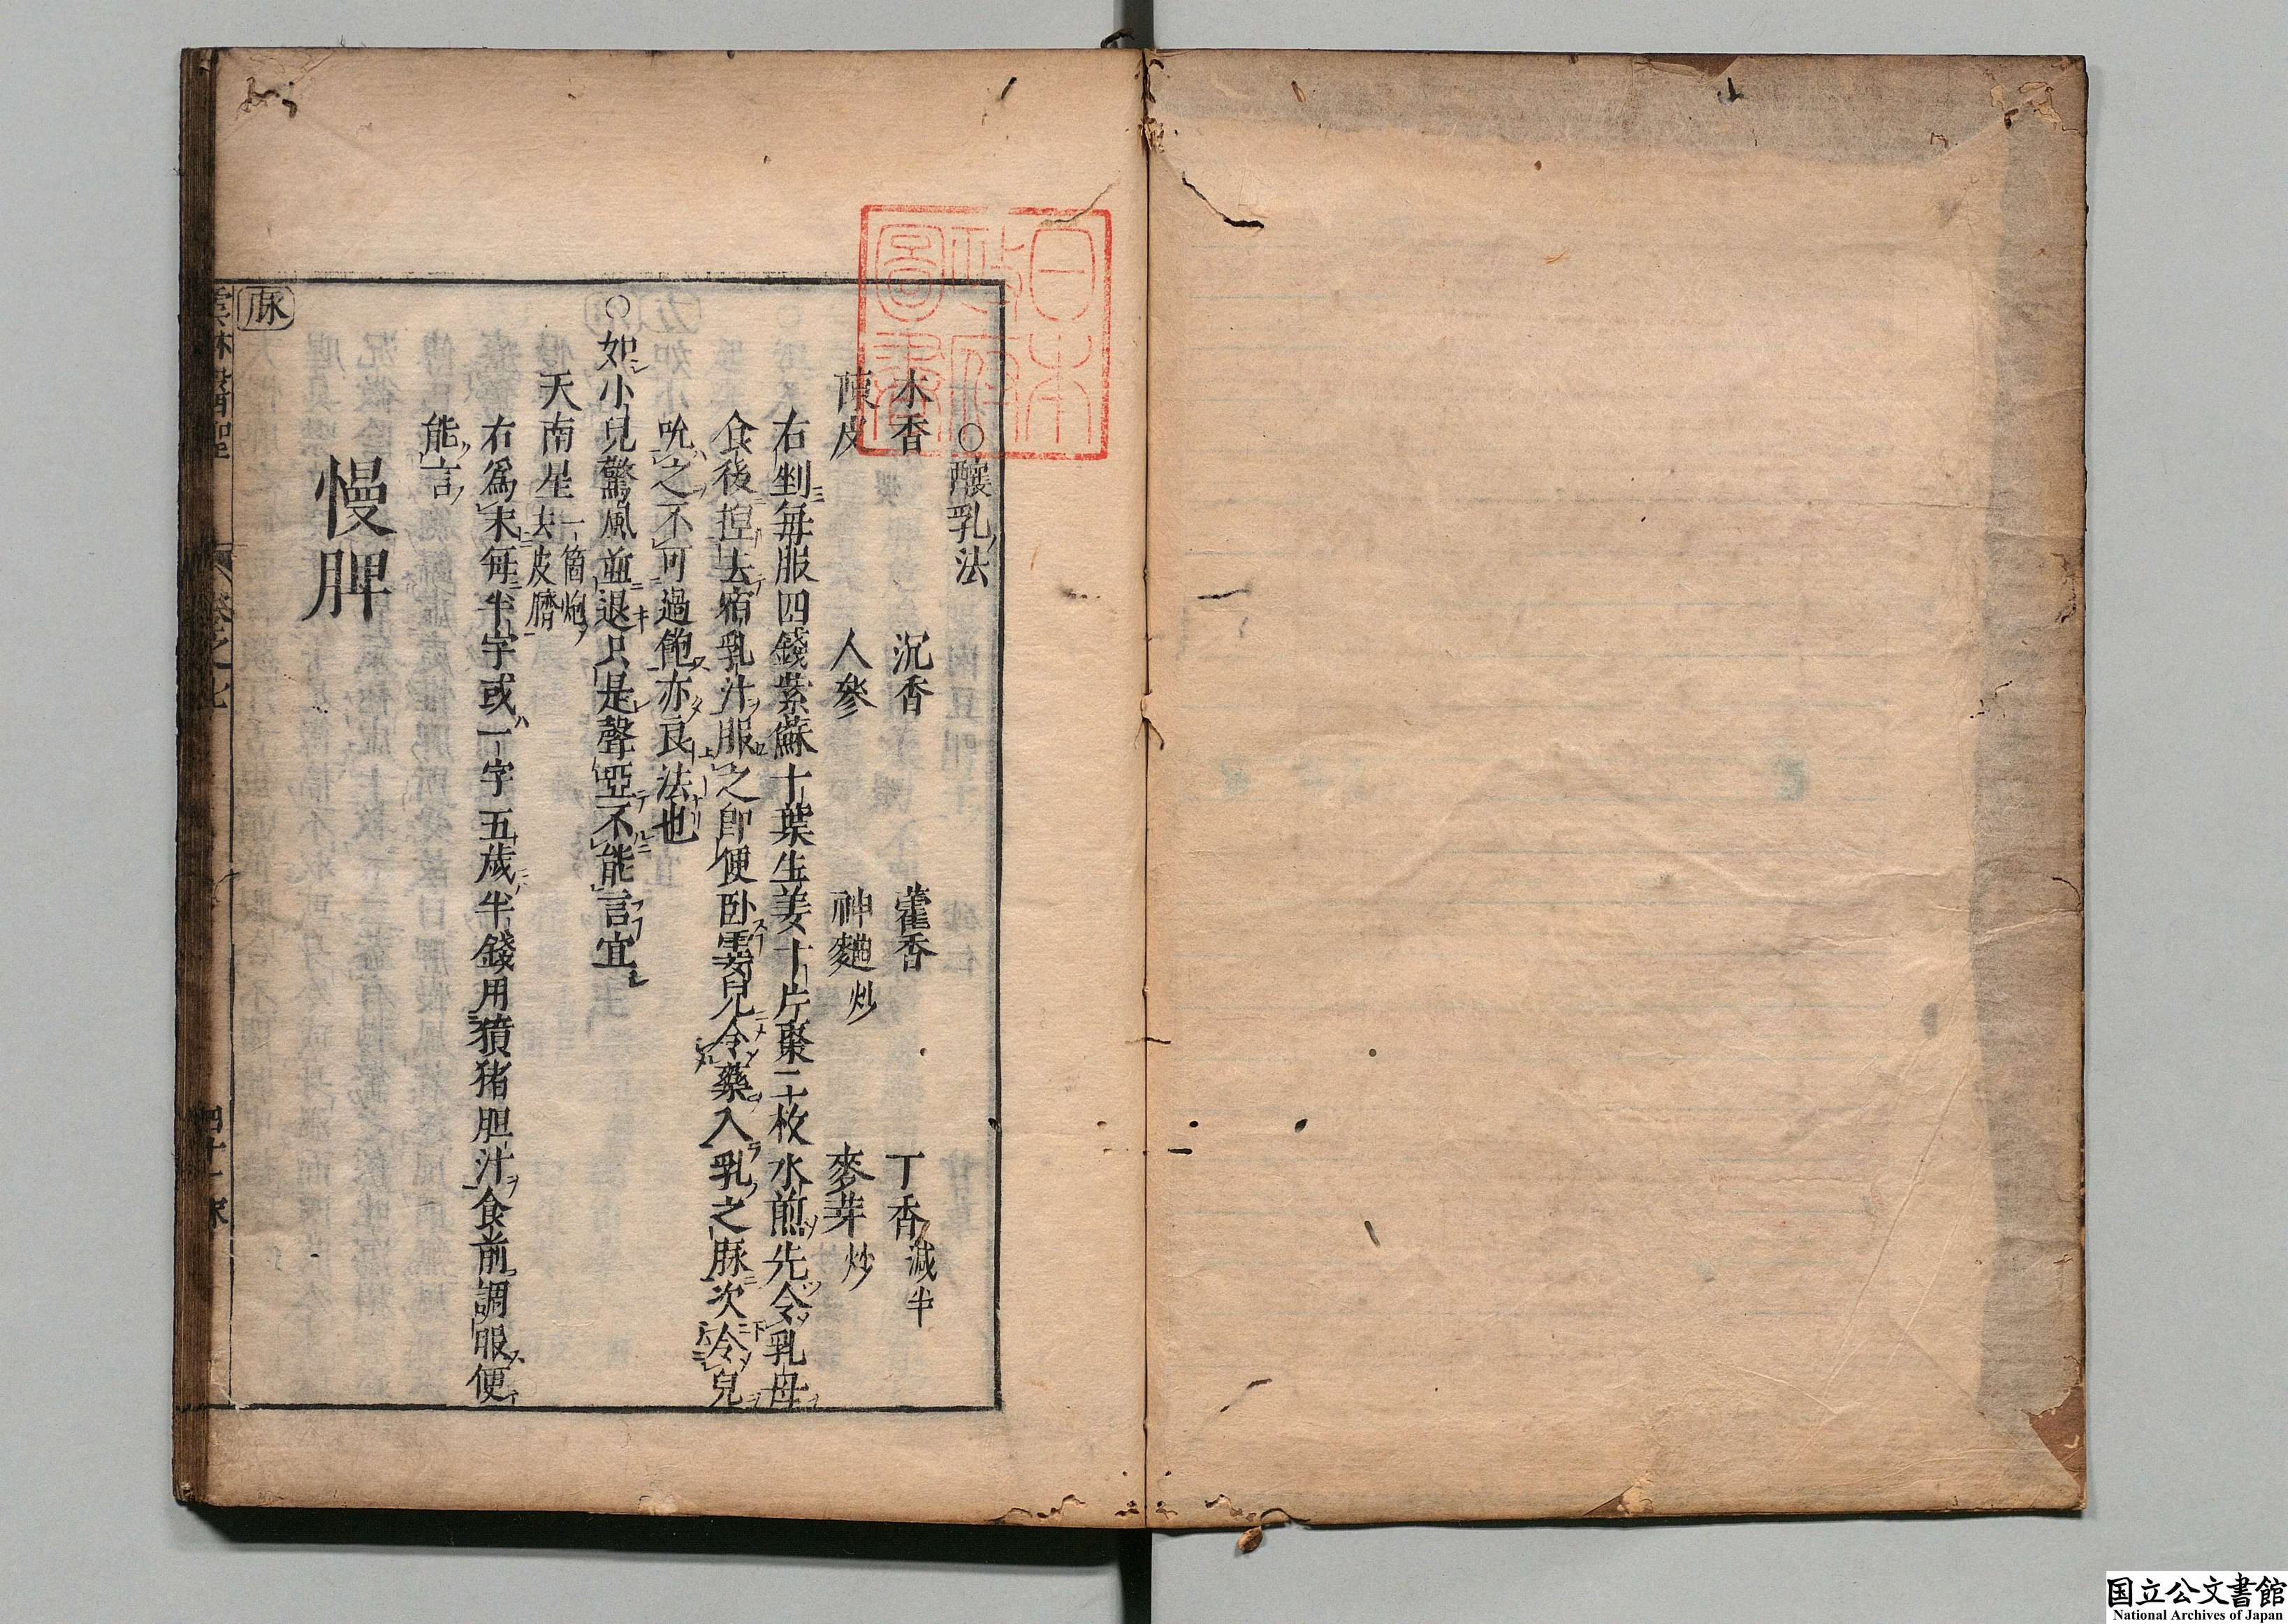 日本
政府
圖書
○釀乳法
木香 沉香 藿香 丁香減半
陳皮 人參 神麯炒 麥芽炒
右剉每服四錢紫蘇十葉生姜十片棗二枚水煎先令乳母
食後揑去宿乳汁服之即便卧霎兒令藥入乳之脉次令兒
吮之不可過飽亦良法也
○如小兒驚風並退只是聲啞不能言宜
天南星一箇炮去皮臍
右爲末每半字或一字五歲半錢用豶猪胆汁食前調服便
能言
慢脾
脉
雲林醫聖 卷之七 四十一
国立公文書館
National Archives of Japan